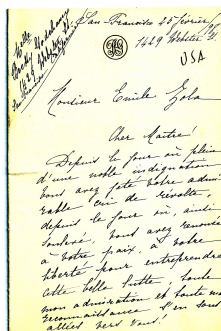 San-Francisco 25 février
1429 Webster St.
USA
Monsieur Emile Zola
Cher Maître!
Depuis le jour où plein
d'une noble indignation
vous avez jeté votre admi-
rable cri de révolte,
depuis le jour où, ainsi
vous avez renoncé
à votre paix, à votre
liberté pour entreprendre
cette belle lutte, toute
mon admiration et toute ma
reconnaissance s'en sont
allées vers vous!